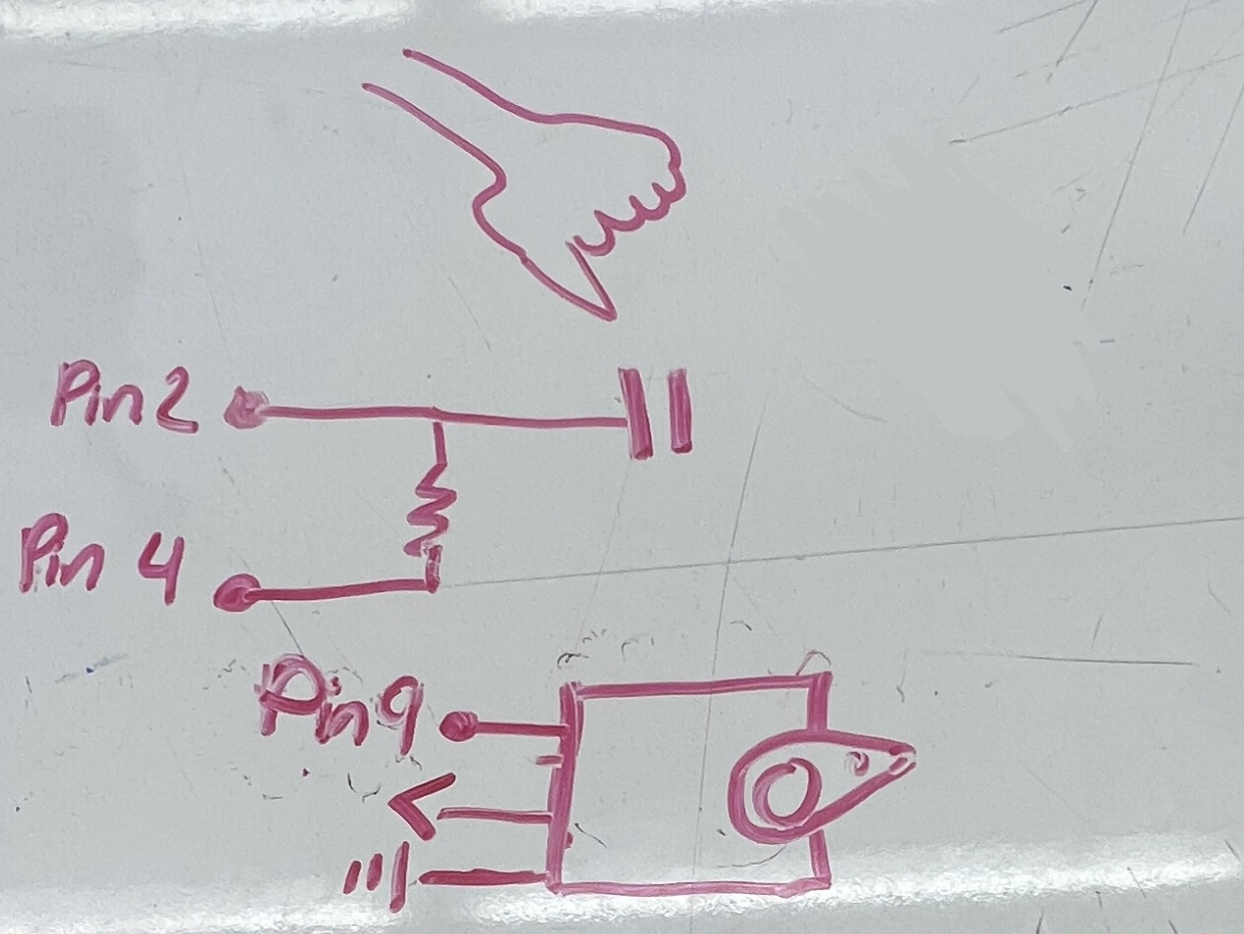 Pin2
Pin 4
Pin9